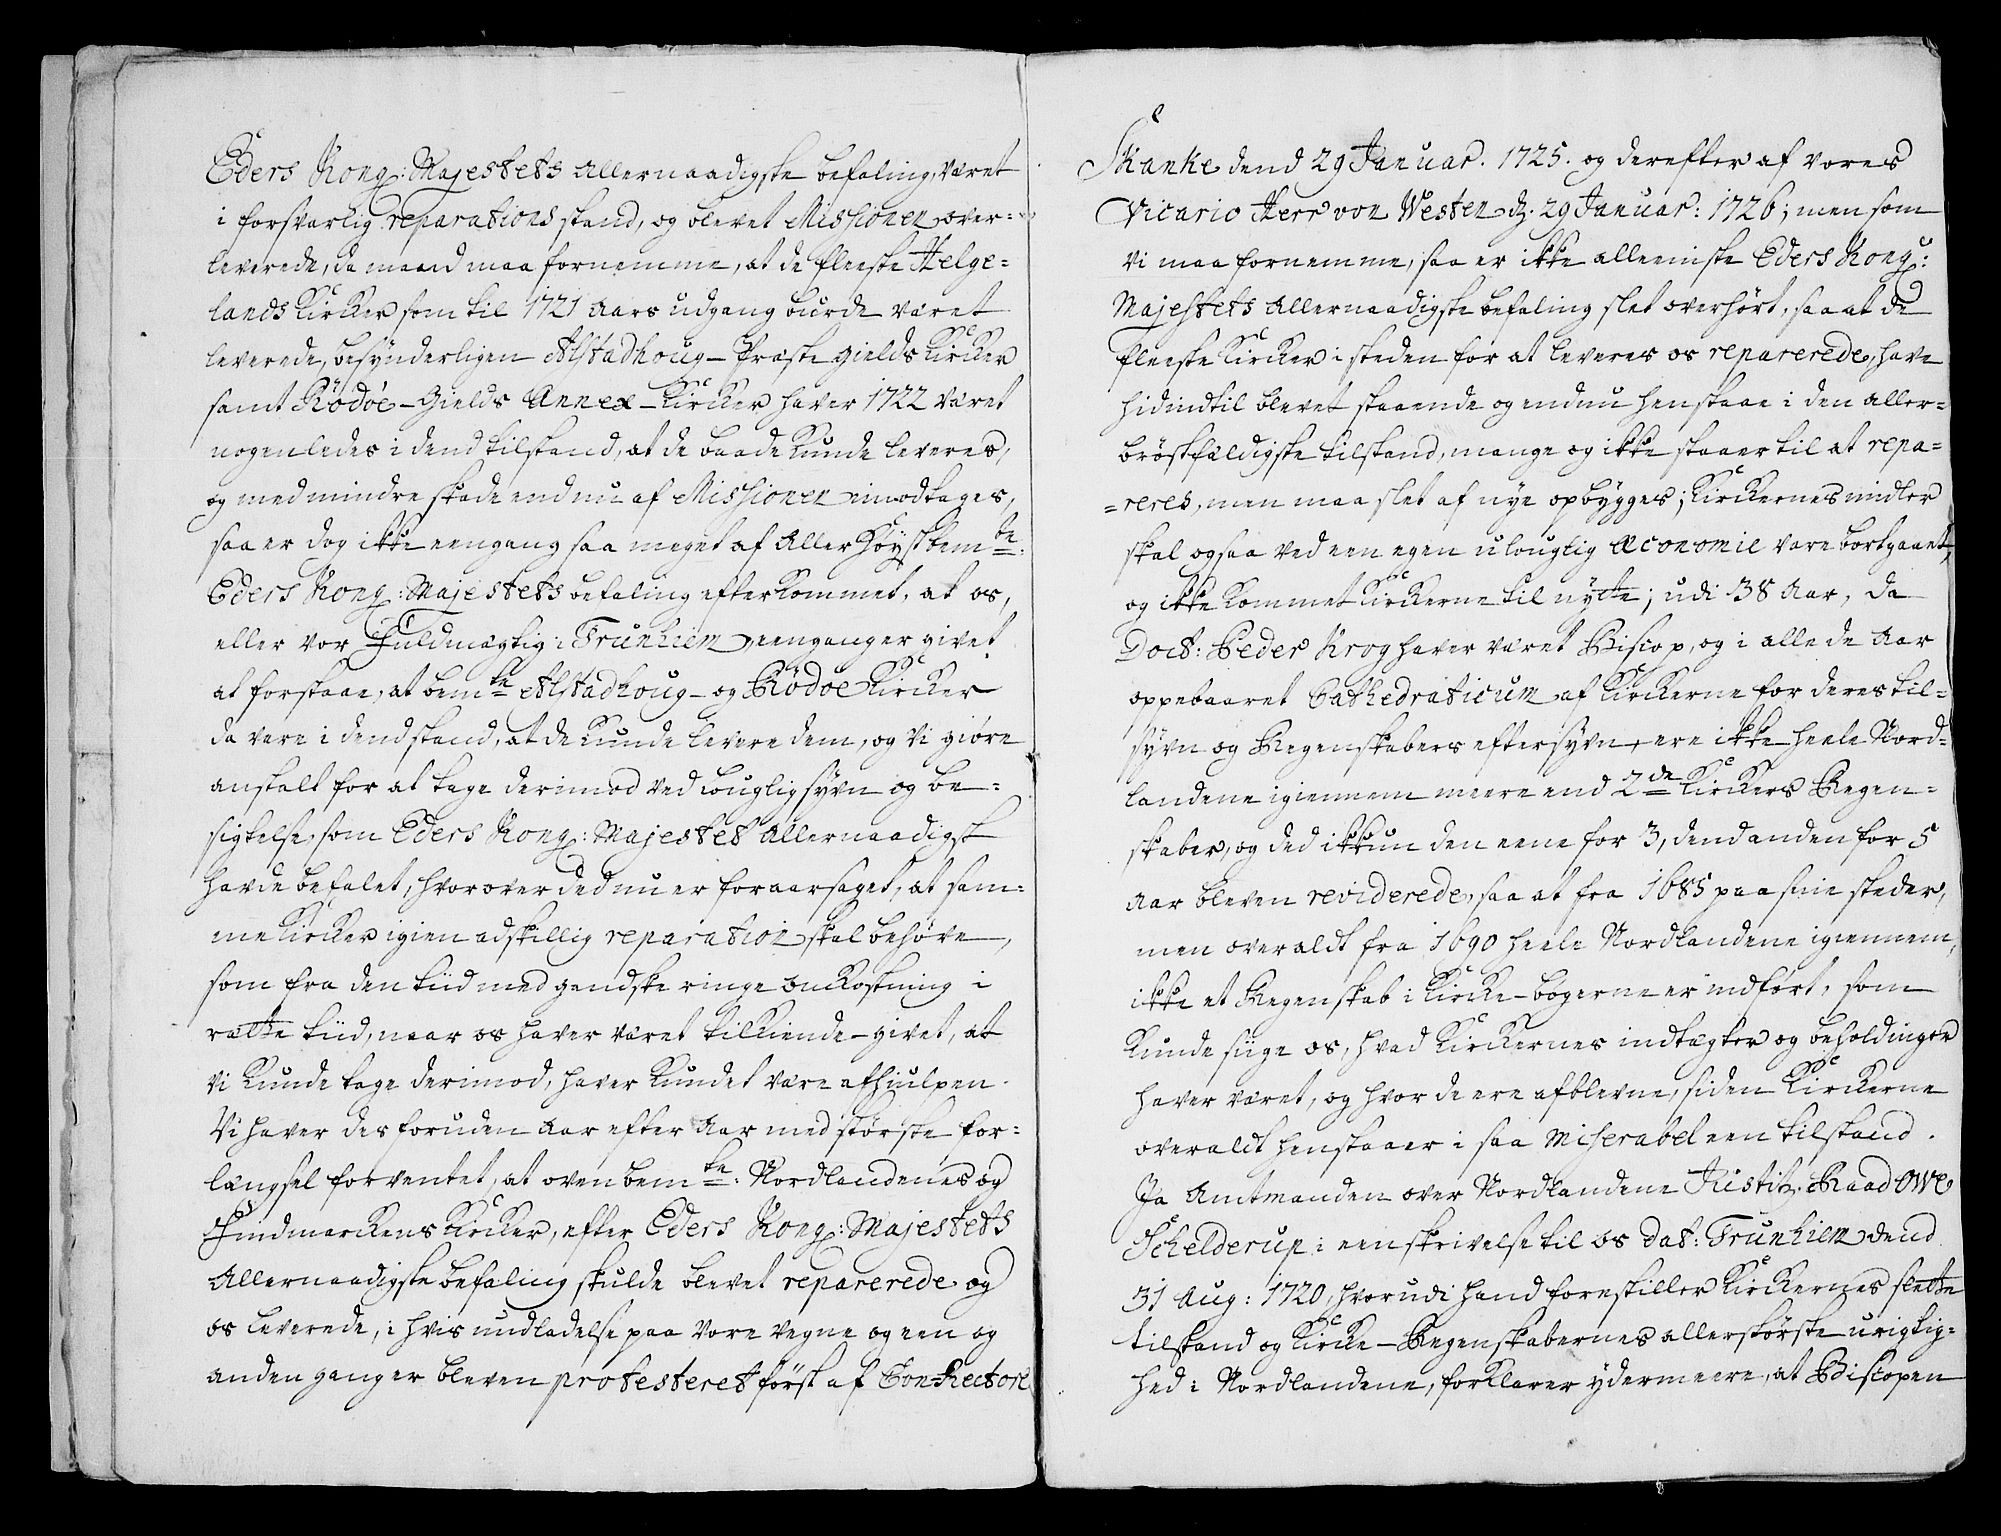 Eders Kong: Majestets Allernaadigste befaling, været
i forsvarlig reparations stand, og blevet Missionen over-
leverede, da maad maa fornemme, at de fleeste Helge-
lands Kircker som til 1721 Aars udgang burde været
leverede, besynderligen Alstadhoug-Præste gields Kircker
samt Rödöe-Gields Annex-Kircker haver 1722 været
nogenledes i dend tilstand, at de baade kunde leveres,
og med mindre skade end nu af Missionen imodtages,
saa er dog ikke eengang saa meget af Allerhöystbem te.
Eders Kong: Majestets befaling efterkommet, at os,
eller vor Fuldmægtig i Trunhiem, eengang er givet
at forstaae, at bem te Alstadhoug- og Rödöe Kircker
da vare i dend stand, at de kunde levere dem, og vi giöre
anstalt for at tage derimod ved louglig syvn og be-
sigtelse, som Eders Kong: Majestet Allernaadigst
havde befalet, hvorover ded nu er foraarsaget, at sam-
me Kircker igien adskillig reparation skal behöve,
som fra den tiid med gandske ringe omkostning i
rætte tiid, naar os haver været tilkiende-givet, at
vi kunde tage derimod, haver kundet være afhiulpen.
Vi haver desforuden Aar efter Aar med störste for-
længsel forventet, at ovenbem te: Nordlandenes og
Findmarckens Kircker, efter Eders Kong: Majestets
Allernaadigste befaling skulde blevet reparerede og
os leverede, i hvis undladelse paa vore vegne og een og
anden gang er bleven protesteret först af Con-Rectore
Skanke dend 29 Januar. 1725. og derefter af vores
Vicario Herr von Westen d. 29 Januar: 1726; men som
vi maa fornemme, saa er ikke alleeniste Eders Kong:
Majestets Allernaadigste befaling slet overhört, saa at de
fleeste Kircker i steden for at leveres os reparerede, have
hidindtil blevet staaende og endnu henstaae i den aller-
bröstfældigste tilstand, mange og ikke staaer til at repa-
=reres, men maa slet af nye opbygges; Kirckernes midler
skal ogsaa ved een egen ulouglig oeconomie være bortgaaet,
og ikke kommet Kirckerne til nytte; udi 38 Aar, da
Doct: Peder Krog haver været Biscop, og i alle de Aar
oppebaaret Cathedraticum af Kirckerne for deres til-
syvn og Regenskabers eftersyvn, ere ikke heele Nord-
landene igiennem meere end 2 de Kirckers Regen-
skaber, og ded ikkun den eene for 3, dend anden for 5
Aar bleven reviderede, saa at fra 1685 paa sine steder,
men overaldt fra 1690 heele Nordlandene igiennem,
ikke et Regenskab i Kircke-bögerne er indfört, som
kunde siige os, hvad Kirckernes indtægter og beholdinger
haver været, og hvor de ere afblevne, siden Kirckerne
overaldt henstaaer i saa miserabel een tilstand.
Ja Amtmanden over Nordlandene Justitz-Raad Owe
Schelderup i een skrivelse til os dat: Trunhiem dend
31 Aug: 1720, hvorudi hand forestiller Kirckernes slette
tilstand og Kircke-Regenskabernes allerstörste urigtig-
hed i Nordlandene, forklarer ydermeere, at Biscopen